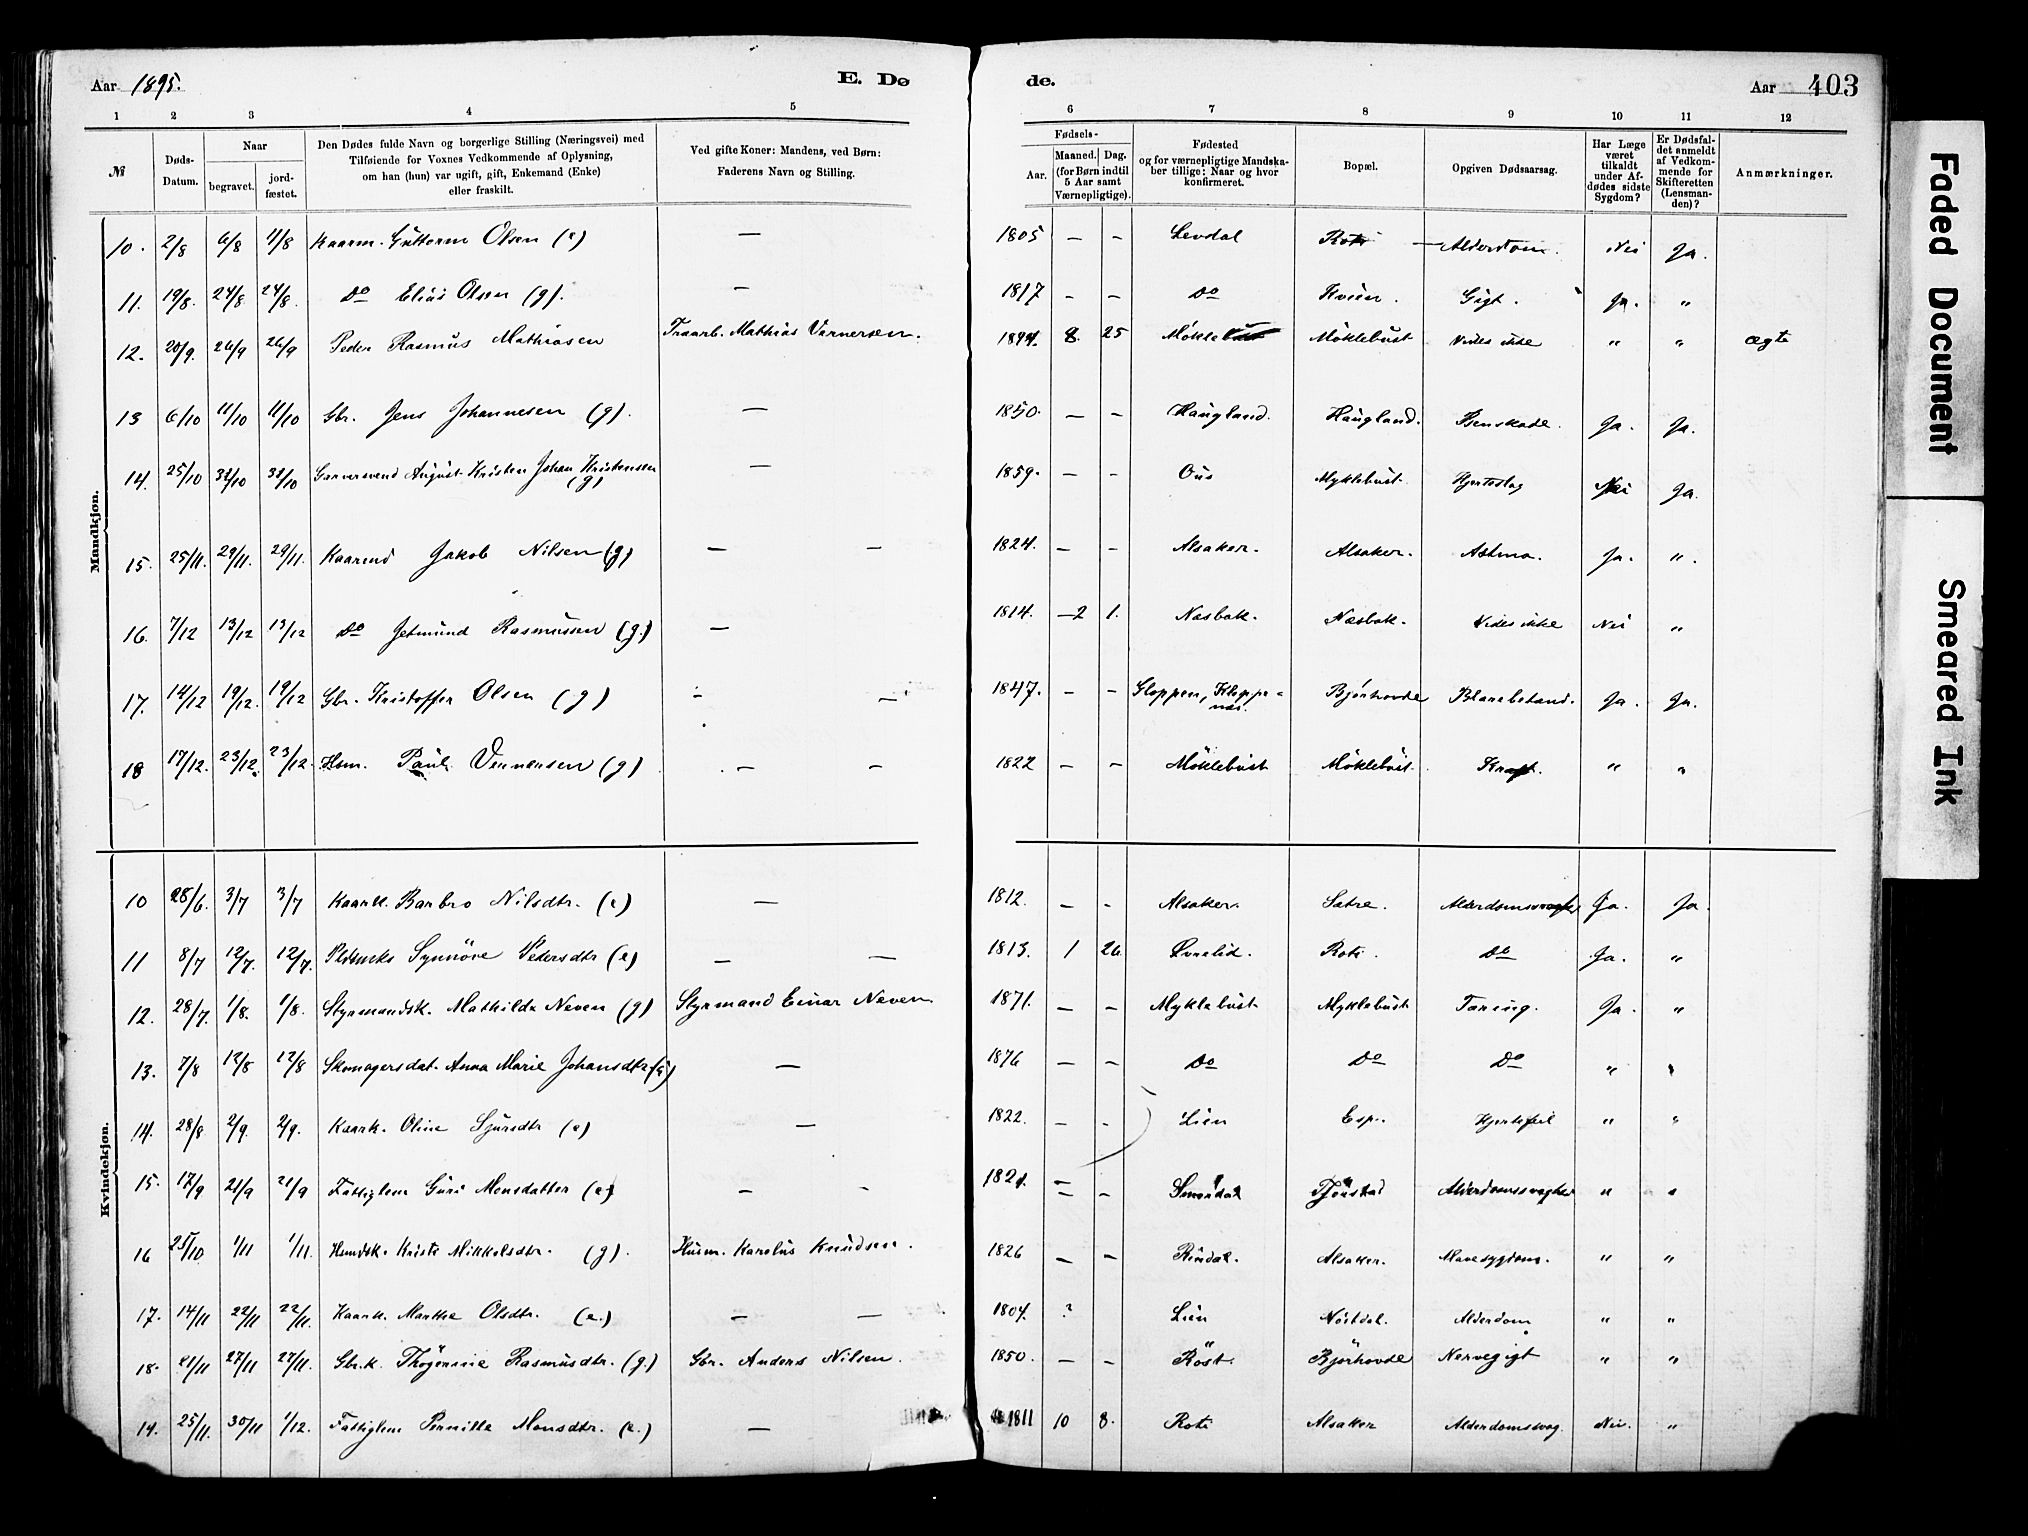 Aar 1895. E. Dø de. Aar 403
1 2 3 4 5 6 7 8 9 10 11 12
№
Døds-Datum.
Naar
begravet.
jord-fæstet.
Den Dødes fulde Navn og borgerlige Stilling (Næringsvei) med
Tilføiende for Voxnes Vedkommende af Oplysning,
om han (hun) var ugift, gift, Enkemand (Enke)
eller fraskilt.
Ved gifte Koner: Mandens, ved Børn:
Faderens Navn og Stilling.
Fødsels-
Aar.
Maaned. Dag.
(for Børn indtil
5 Aar samt
Værnepligtige).
Fødested
og for værnepligtige Mandska-
ber tillige: Naar og hvor
konfirmeret.
Bopæl.
Opgiven Dødsaarsag.
Har Læge
været
tilkaldt
under Af-
dødes sidste
Sygdom?
Er Dødsfal-
det anmeldt
af Vedkom-
mende for
Skifteretten
(Lensman-
den)?
Anmærkninger.
Mandkjøn.
10. 2/8 6/8 11/8 Kaarm. Guttorm Olsen (e) — 1805 — — Levdal Roti — Alderdom. Nei Ja.
11. 19/8. 24/8 24/8. Do Elias Olsen (g). — 1817 — — Do Kvien. Gigt. Ja. "
12. 20/9. 26/9 26/9 Peder Rasmus Mathiasen Mathias Vernersen. 1894. 8. 25 Möklebust Möklebust Vides ikke " " ægte
13 6/10 11/10 11/10 Gbr. Jens Johannesen (g). — 1850. — — Haugland. Haugland. Benskade. Ja. Ja.
14. 25/10 31/10 31/10 Garversvend August Kristen Johan Kristensen (g) — 1859. — — Ous Myklebust. Hjerteslag Nei Ja.
15. 25/11. 29/11. 29/11. Kaarmd Jakob Nilsen (g) — — 1824. — — Alsaker. Alsaker. Astma. Ja. ".
16. 7/12 13/12 13/12 Do Jetmund Rasmussen (g.) — 1814. — 2 1. Næsbak. Næsbak. Vides ikke Nei "
17. 14/12 19/12. 19/12 Gbr. Kristoffer Olsen (g) — — 1847. — — Gloppen, Kloppe-
næs. Bjørhovde Ja. Ja.
18 17/12. 23/12. 23/12. Hsm. Paul Vernersen (g) — — 1822 — — Möklebust Möklebust. Kræft. " "
Kvindekjøn.
10 28/6. 3/7 3/7 Kaark. Barbro Nilsdtr. (e) — 1812. — — Alsaker. Sætre. Alderdomssvaghed Ja. Ja.
11 8/7 12/7. 12/7. Synnöve Pedersdtr (e) — — 1813. 1 26 Övrelid. Roti. Do Ja. "
12. 28/7. 1/8. 1/8. Styrmandsk. Mathilde Neven (g) Styrmand Einar Neven. 1871. — — Myklebust Myklebust Tæring. Ja. "
13. 7/8 12/8 12/8 Skomagersdat. Anna Marie Johansdtr (u) — 1876 — — Do Do Do " "
14. 28/8 2/9. 2/9. Kaark. Oline Sjursdtr (e) — 1822. — — Lien Esp. Hjertefeil " "
15. 17/9 21/9 21/9 Fattiglem Guri Monsdatter (e) — — 1821. — — Smördal Tjönstad Alderdomssvaghed " "
16 25/10 1/11 1/11. Husmdsk. Kristi Mikkelsdtr. (g). Husm. Karolus Knudsen. 1826 — — Rindal. Alsaker. Mavesygdom. " "
17. 14/11 22/11 22/11. Kaark. Marthe Olsdtr. (e.) — — 1804. ? Lien Nöstdal. Alderdom " "
18. 21/11 27/11 27/11. Gbr.k. Thogerine Rasmusdtr. (g.) Gbr. Anders Nilsen. 1850. — — Röst. Bjørhovde Nervegigt " "
19. 25/11. 30/11 1/12. Fattiglem Pernille Monsdtr. (e.) — 1811 10 8. Roti Alsaker Alderdomssvag. Nei. "
Faded Document
Smeared Ink